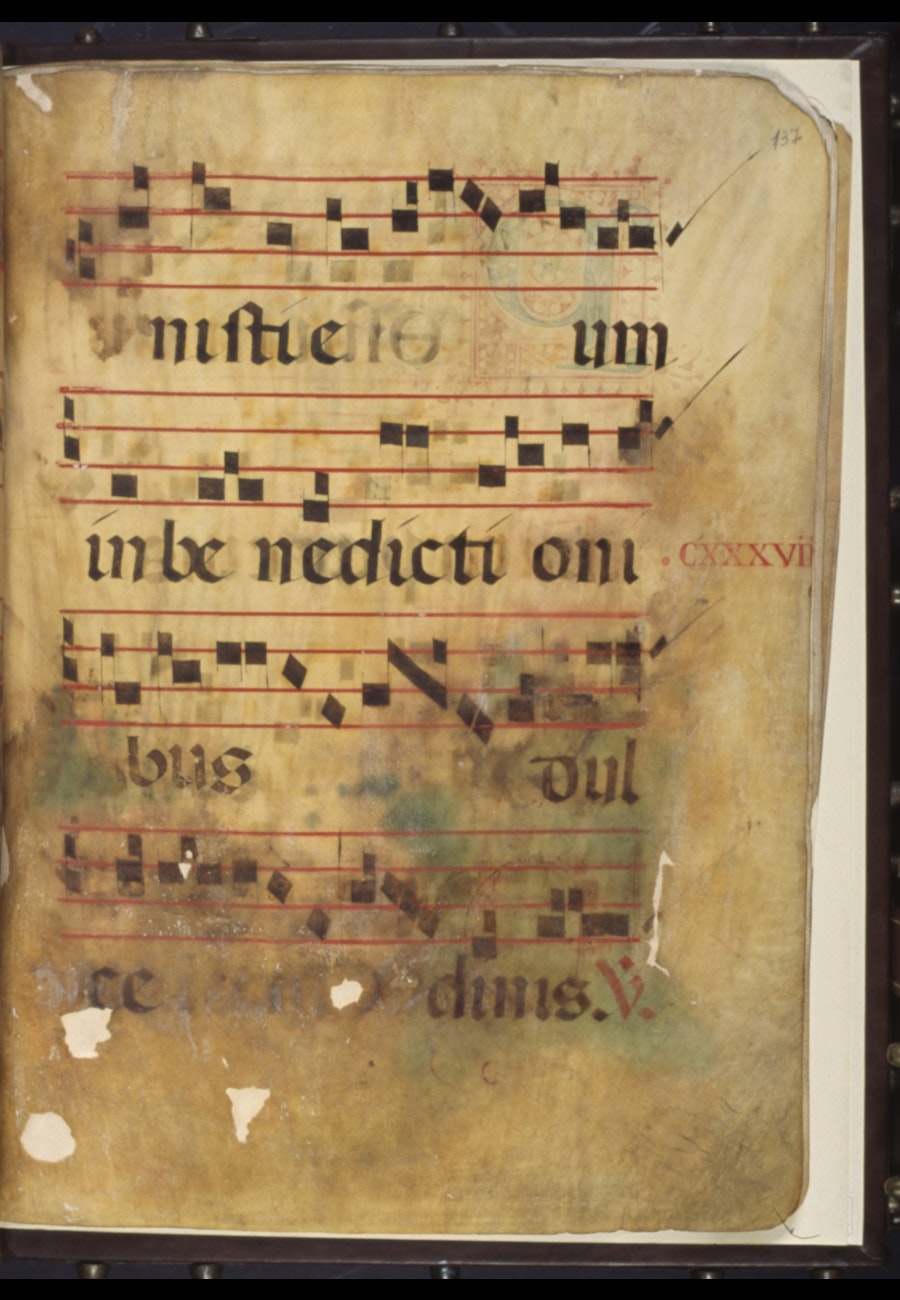 137
nistie um
in be nedicti oni
. CXXXVII
bus dul
ce dinis. V.